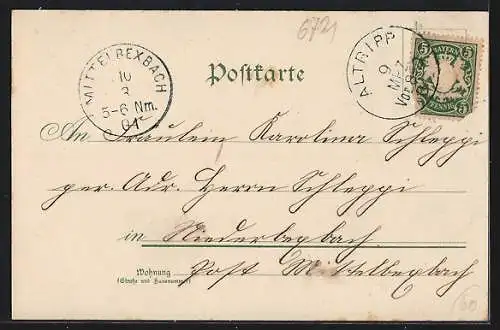 6721
MITTELBEXBACH
10
3
5-6 Nm.
01
Postkarte
ALTRIPP
9
MRZ
BAYERN
5 5
PFENNIG
An Fräulein Karolina Schleppi
per. Adr. Herrn Schleppi
in Niederbexbach
Wohnung
(Straße und Hausnummer)
Post Mittelbexbach